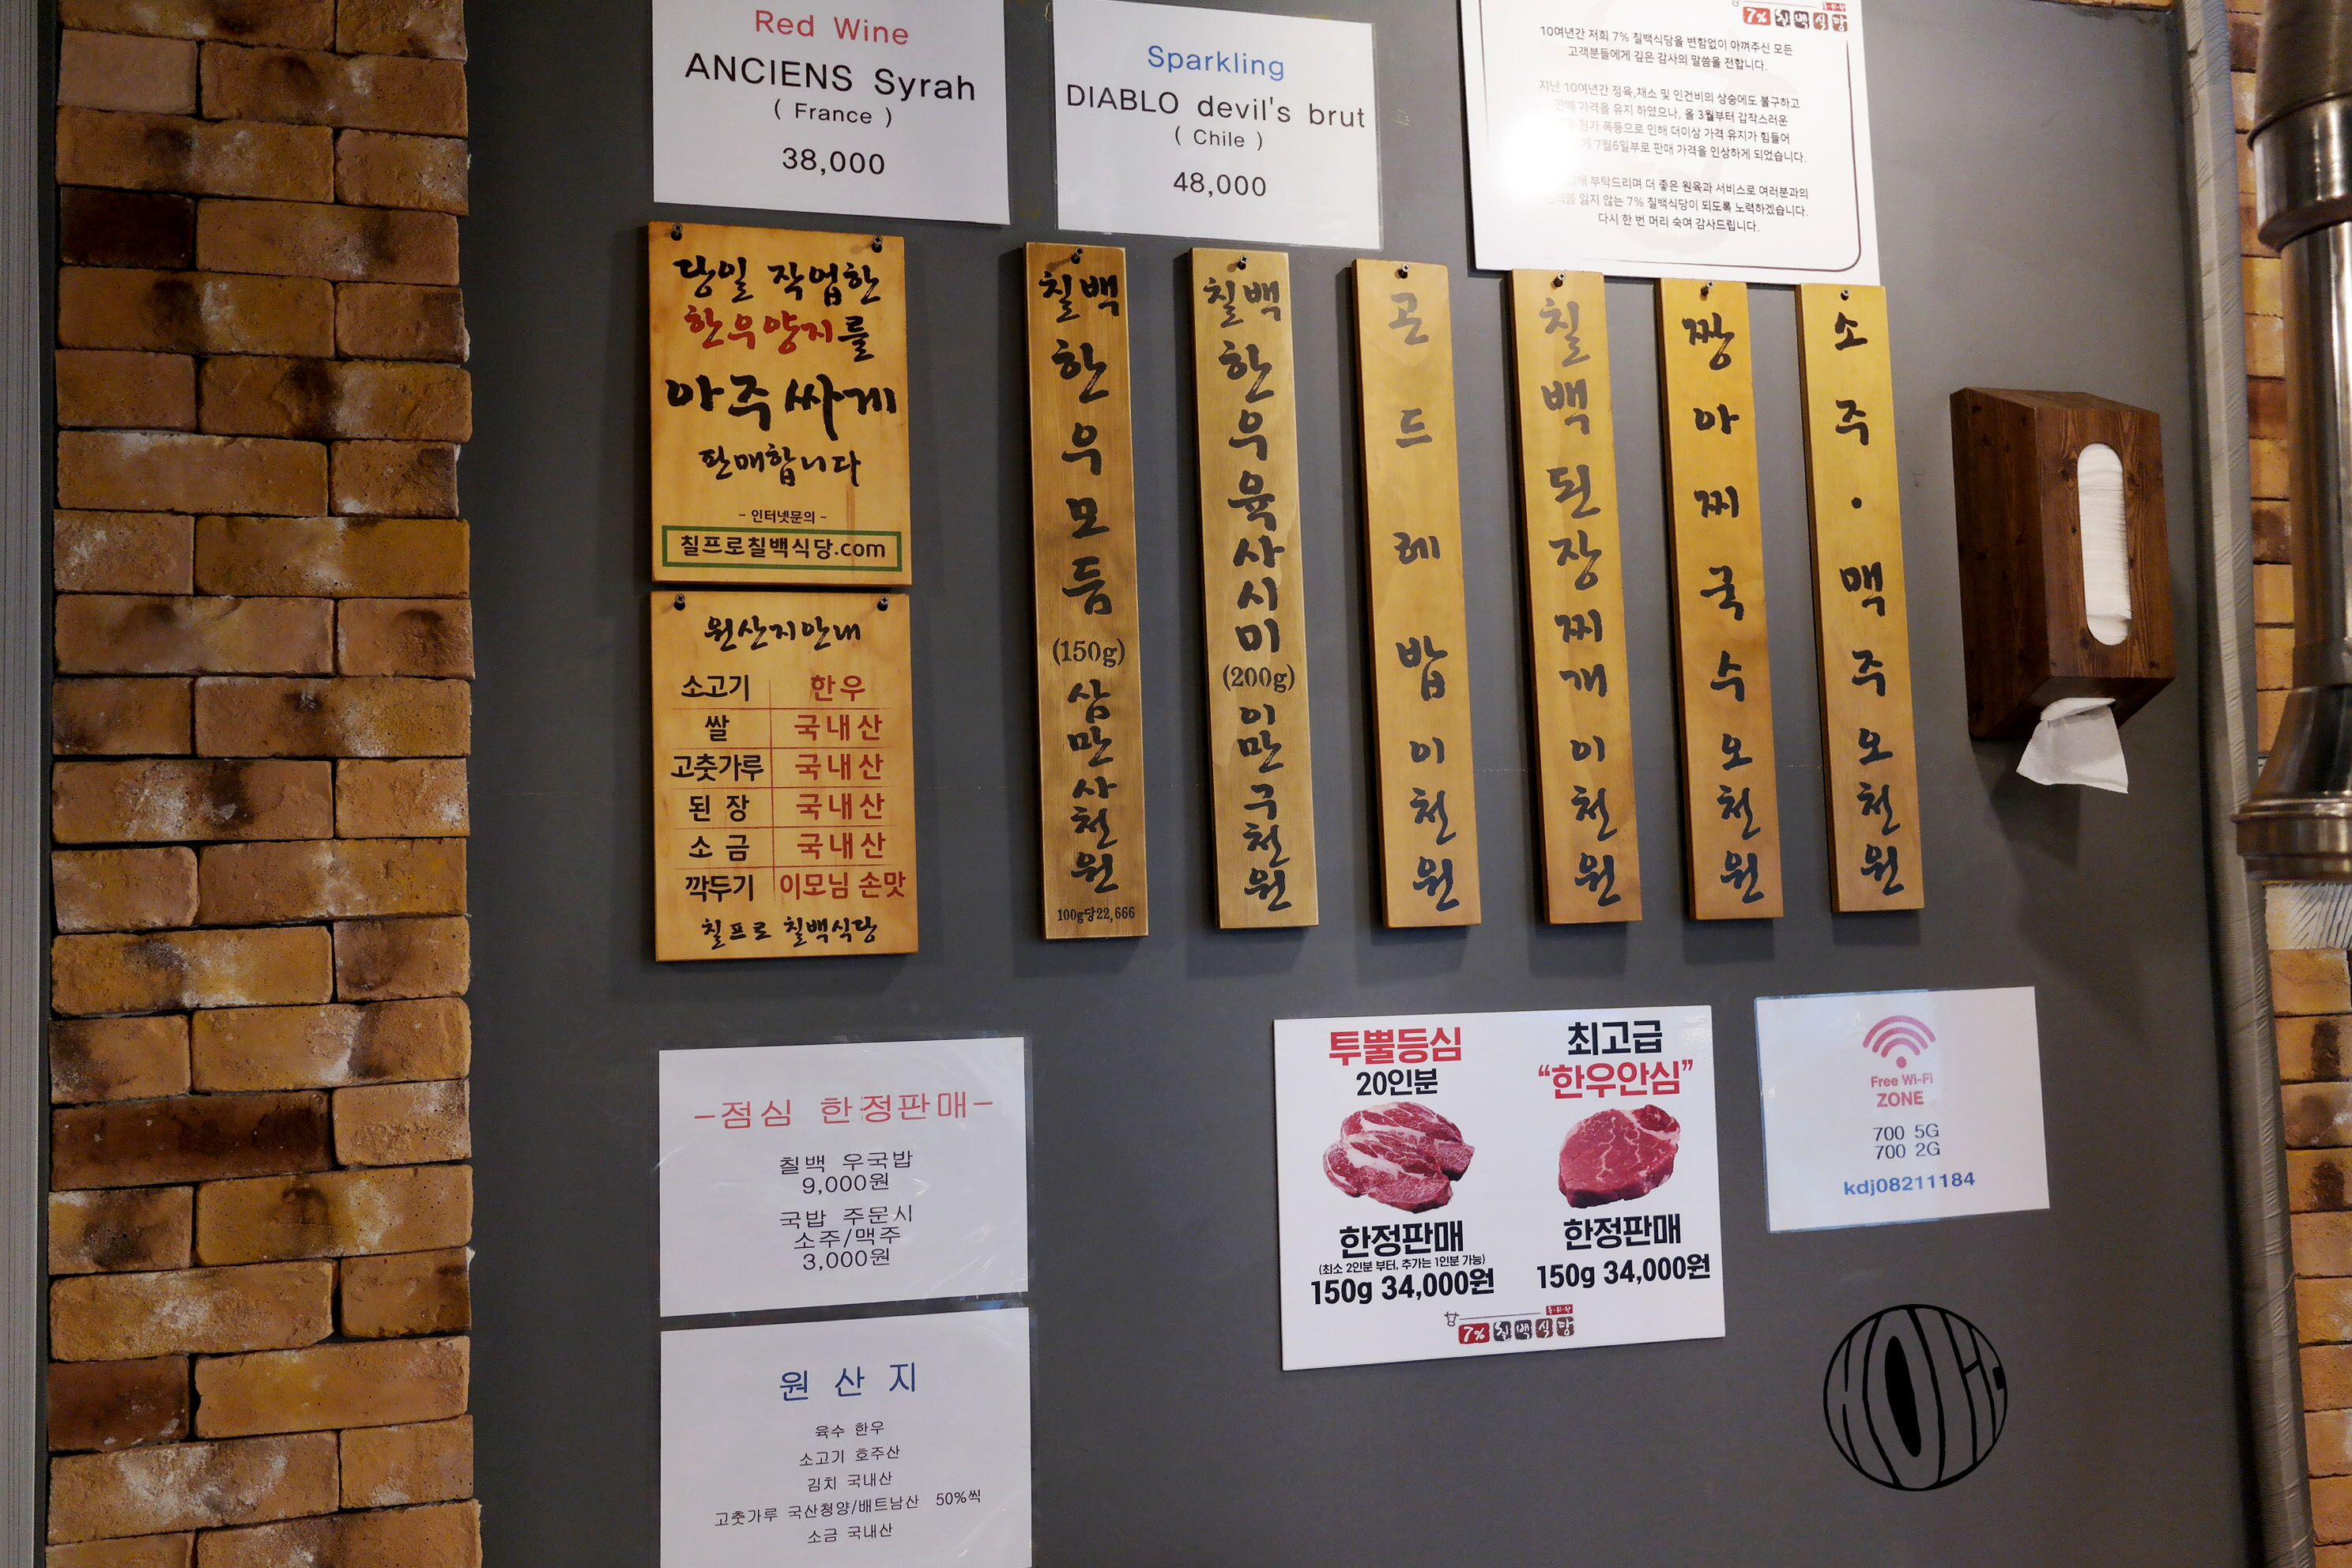 Red Wine
ANCIENS Syrah
( France )
38,000
Sparkling
DIABLO devil's brut
( Chile )
48,000
7% 칠백식당
10여년간 저희 7% 칠백식당을 변함없이 아껴주신 모든
고객분들에게 깊은 감사의 말씀을 전합니다.
지난 10여년간 정육,채소 및 인건비의 상승에도 불구하고
판매 가격을 유지 하였으나, 올 3월부터 갑작스러운
원가 폭등으로 인해 더이상 가격 유지가 힘들어
7월6일부로 판매 가격을 인상하게 되었습니다.
부탁드리며 더 좋은 원육과 서비스로 여러분과의
잃지 않는 7% 칠백식당이 되도록 노력하겠습니다.
다시 한 번 머리 숙여 감사드립니다.
당일 작업한
한우양지를
아주 싸게
판매합니다
- 인터넷문의 -
칠프로칠백식당.com
원산지안내
소고기 한우
쌀 국내산
고춧가루 국내산
된 장 국내산
소 금 국내산
깍두기 이모님 손맛
칠프로 칠백식당
칠백한우모듬(150g)삼만사천원
100g당22,666
칠백한우육사시미(200g)이만구천원
곤드레밥이천원
칠백된장찌개이천원
짱아찌국수오천원
소주·맥주오천원
-점심 한정판매-
칠백 우국밥
9,000원
국밥 주문시
소주/맥주
3,000원
원 산 지
육수 한우
소고기 호주산
김치 국내산
고춧가루 국산청양/베트남산 50%씩
소금 국내산
투뿔등심
20인분
한정판매
(최소 2인분 부터, 추가는 1인분 가능)
150g 34,000원
최고급
“한우안심”
한정판매
150g 34,000원
7% 칠백식당
Free Wi-Fi
ZONE
700 5G
700 2G
kdj08211184
HOliC